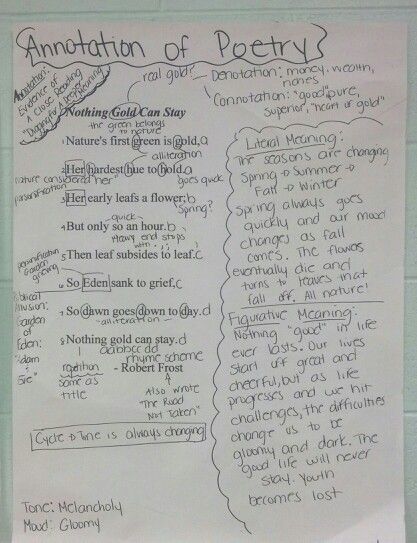 Annotation of Poetry
Annotation:
Evidence of
A Close Reading
"Digging for deeper meaning"
real gold?
Denotation: money, wealth,
riches
Connotation: "good", pure,
superior, "heart of gold"
Nothing Gold Can Stay
the green belongs
to nature
1 Nature's first green is gold, a
alliteration
2 Her hardest hue to hold. a
nature considered her
personification
goes quick
3 Her early leafs a flower; b
Spring?
quick
4 But only so an hour. b
Heavy end stops
with . ; ,
5 Then leaf subsides to leaf. c
personification
Garden
grieving
6 So Eden sank to grief, c
Biblical
Allusion:
Garden
of
Eden:
"Adam
7 So dawn goes down to day. d
"alliteration"
8 Nothing gold can stay. d
aabbccdd
rhyme scheme
repetition
same as
title
- Robert Frost
Also wrote
"The Road
Not Taken"
Cycle → Time is always changing
Tone: Melancholy
Mood: Gloomy
Literal Meaning:
The seasons are changing
Spring → Summer →
Fall → Winter
Spring always goes
quickly and our mood
changes as fall
comes. The flowers
eventually die and
turns to leaves that
fall off. All nature!
Figurative Meaning:
Nothing "good" in life
ever lasts. Our lives
start off great and
cheerful, but as life
progresses and we hit
challenges, the difficulties
change us to be
gloomy and dark. The
good life will never
stay. Youth
becomes lost